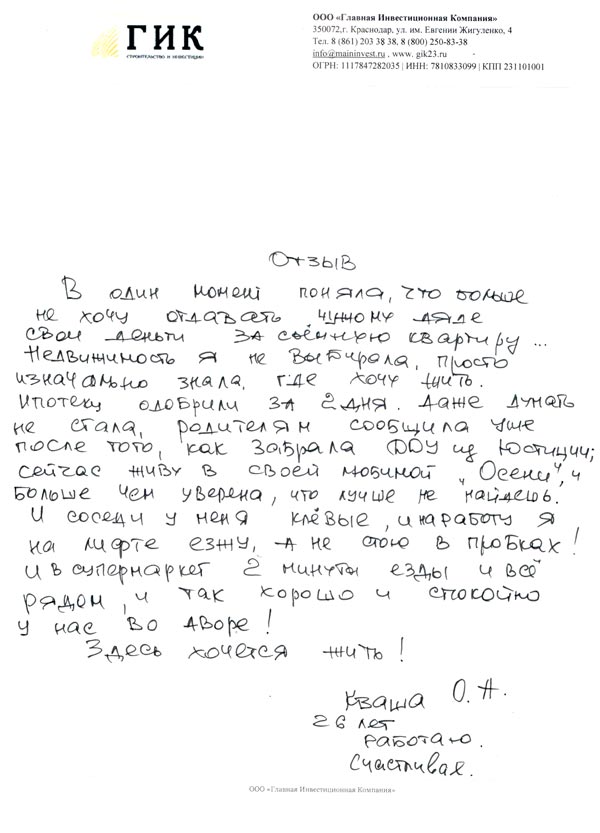 ГИК
СТРОИТЕЛЬСТВО И ИНВЕСТИЦИИ
ООО «Главная Инвестиционная Компания»
350072,г. Краснодар, ул. им. Евгении Жигуленко, 4
Тел. 8 (861) 203 38 38, 8 (800) 250-83-38
info@maininvest.ru , www. gik23.ru
ОГРН: 1117847282035 | ИНН: 7810833099 | КПП 231101001
Отзыв
В один момент поняла, что больше
не хочу отдавать чужому дяде
свои деньги за съёмную квартиру ...
Недвижимость я не выбирала, просто
изначально знала, где хочу жить.
Ипотеку одобрили за 2 дня. Даже думать
не стала, родителям сообщила уже
после того, как забрала ДДУ из Юстиции;
сейчас живу в своей любимой „Осени", и
больше чем уверена, что лучше не найдешь.
И соседи у меня клёвые, и на работу я
на лифте езжу, а не стою в пробках!
и в супермаркет 2 минуты езды и всё
рядом, и так хорошо и спокойно
у нас во дворе!
Здесь хочется жить!
Кваша О. А.
26 лет
работаю.
Счастливая.
ООО «Главная Инвестиционная Компания»